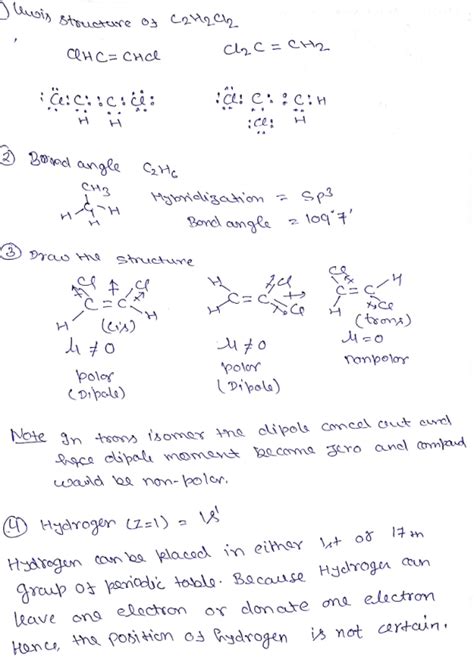 ) Lewis structure of C2H2Cl2
ClHC=CHCl Cl2C=CH2
:Cl: C: : C: Cl: :Cl: C: : C: H
H H :Cl: H
② Bond angle C2H6
CH3
H-C-H Hybridization = Sp3
H Bond angle = 109°7'
③ Draw the structure
Cl Cl H Cl Cl H
C=C C=C C=C
H (cis) H H Cl H Cl
(trans)
μ ≠ 0 μ ≠ 0 μ = 0
polar polar nonpolar
(Dipole) (Dipole)
Note In trans isomer the dipole cancel out and
hece dipole moment become zero and compad
would be non-polar.
④ Hydrogen (Z=1) = 1s1
Hydrogen can be placed in either 1st or 17th
group of periodic table. Because Hydrogen can
leave one electron or donate one electron
Hence, the position of hydrogen is not certain.